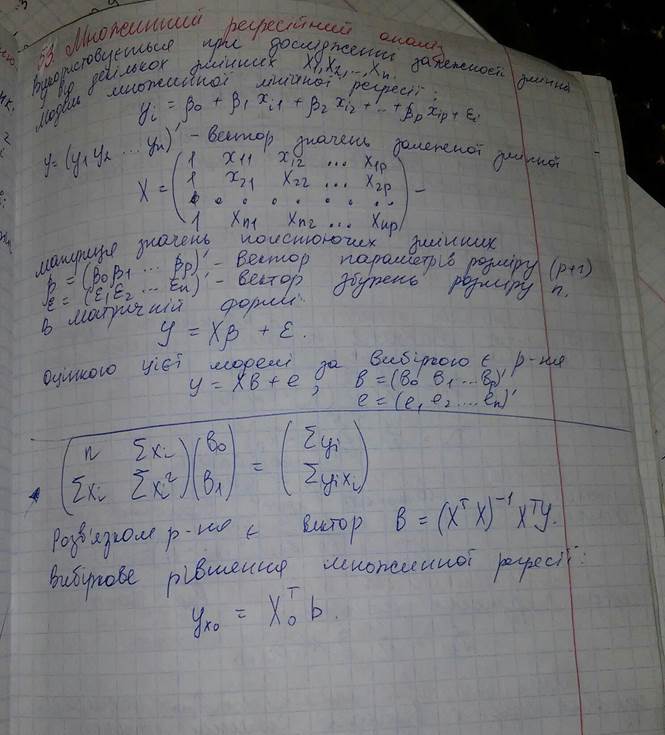 53. Множинний регресійний аналіз
Використовується при дослідженні залежності змінної
від декількох змінних X₁, X₂, ..., Xₙ.
Модель множинної лінійної регресії:
yᵢ = β₀ + β₁ xᵢ₁ + β₂ xᵢ₂ + ... + βₚ xᵢₚ + εᵢ
y = (y₁ y₂ ... yₙ)' - вектор значень залежної змінної
1 x₁₁ x₁₂ ... x₁ₚ
X = ( 1 x₂₁ x₂₂ ... x₂ₚ ) -
. . . . . . . . .
1 xₙ₁ xₙ₂ ... xₙₚ
матриця значень пояснюючих змінних
β = (β₀ β₁ ... βₚ)' - вектор параметрів розміру (p+1)
ε = (ε₁ ε₂ ... εₙ)' - вектор збурень розміру n.
В матричній формі
y = Xβ + ε.
Оцінкою цієї моделі за вибіркою є р-ня
y = XB + e, B = (B₀ B₁ ... Bₚ)'
e = (e₁ e₂ .... eₙ)'
( n Σxᵢ ) ( B₀ ) = ( Σyᵢ )
( Σxᵢ Σxᵢ² ) ( B₁ ) ( Σyᵢxᵢ )
Розв'язком р-ня є вектор B = (XᵀX)⁻¹ Xᵀy.
Вибіркове рівняння множинної регресії:
yₓ₀ = X₀ᵀ b.